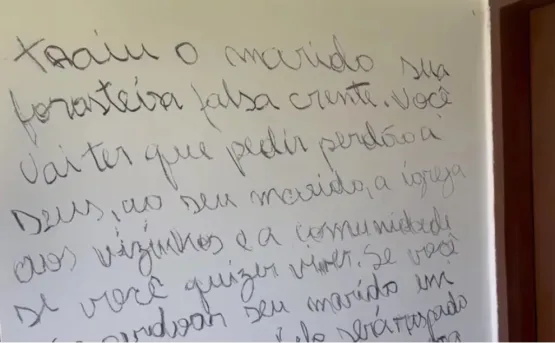 traiu o marido sua
forasteira falsa crente. Você
vai ter que pedir perdão a
Deus, ao seu marido, a igreja
aos vizinhos e a comunidade
se você quizer viver. Se você
perdoar seu marido um
será raspado